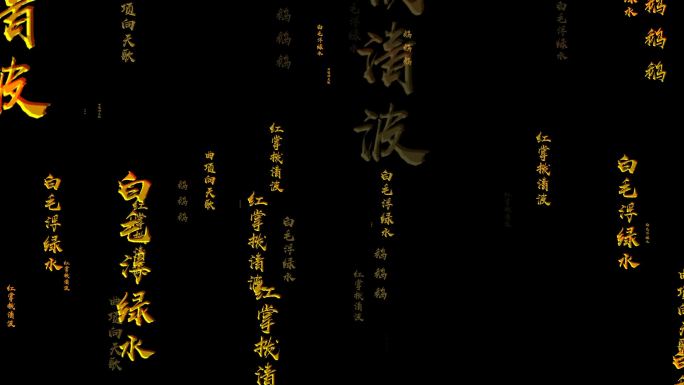 波
曲项向天歌
鹅鹅鹅
白毛浮绿水
清波
鹅鹅鹅
水
鹅鹅鹅
白毛浮绿水
红掌拨清波
红掌拨清波
白毛浮绿水
曲项向天歌
鹅鹅鹅
曲项向天歌
红掌拨清波
红掌拨清波
白毛浮绿水
红掌拨清
白毛浮绿水
鹅鹅鹅
红掌拨清波
红掌拨清波
白毛浮绿水
白